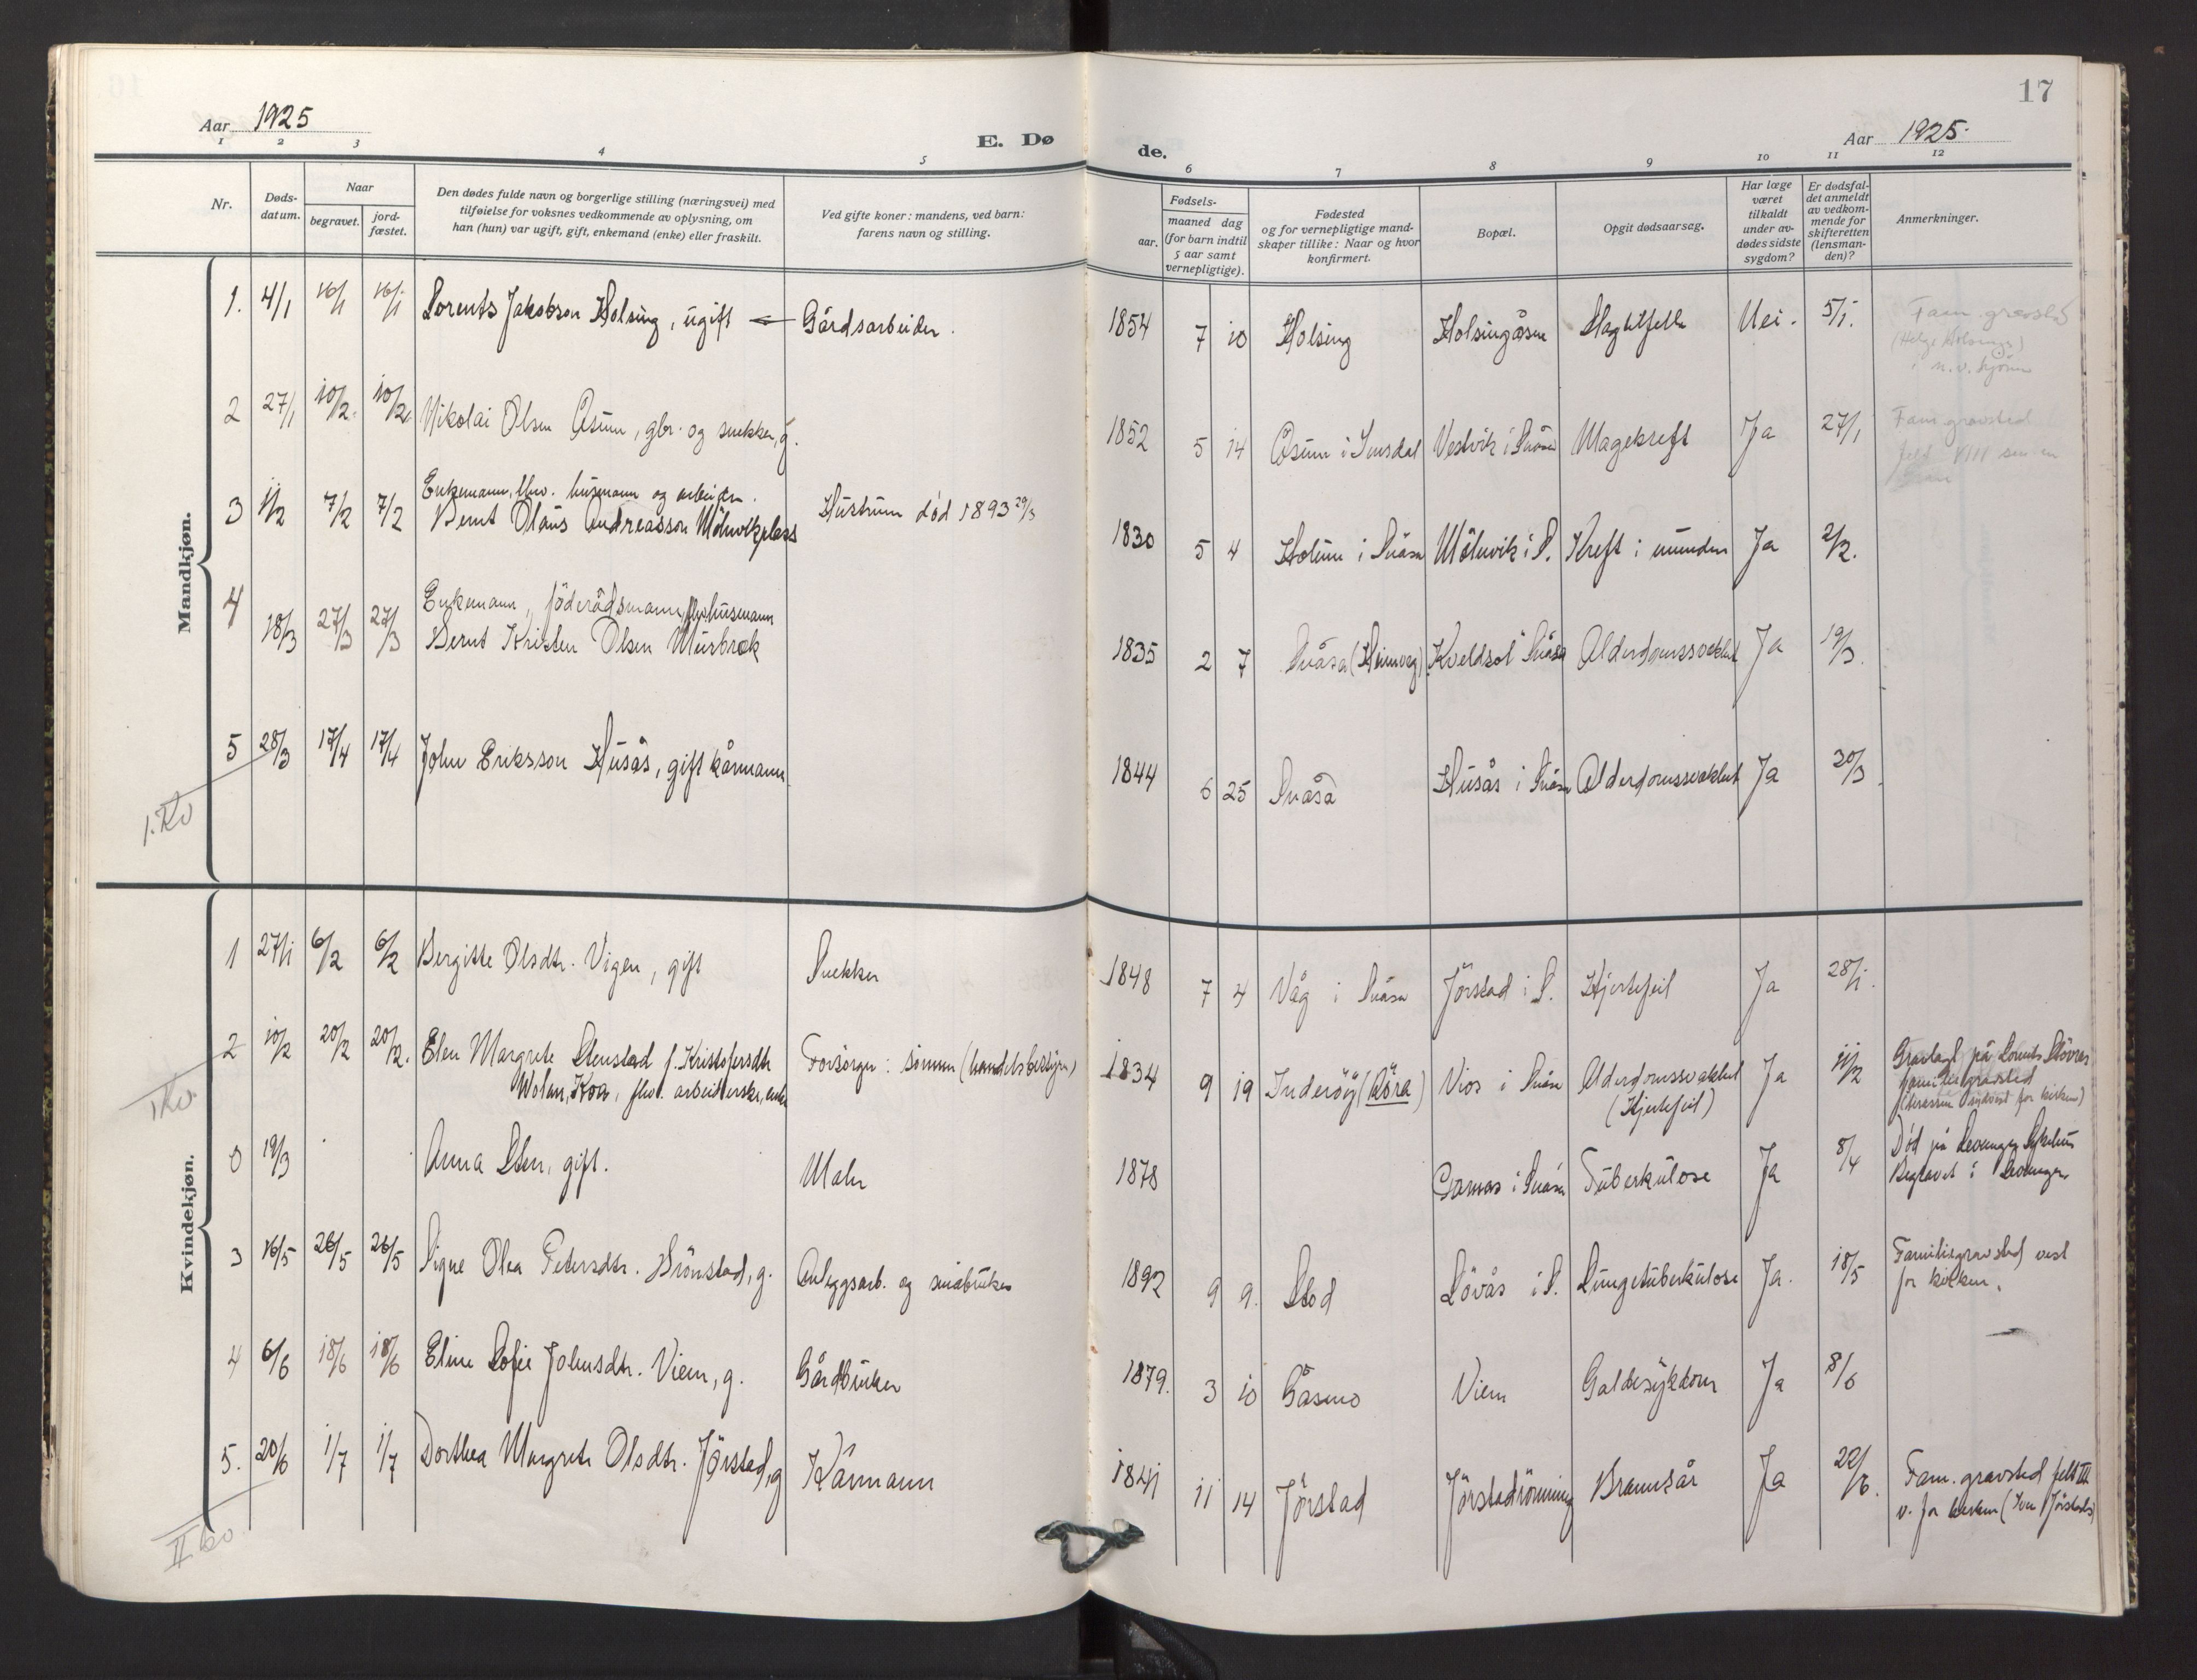 17
Aar 1925
E. Dø
de.
Aar 1925.
1 2 3 4 5 6 7 8 9 10 11 12
Nr.
Døds-
datum.
Naar
begravet.
jord-
fæstet.
Den dødes fulde navn og borgerlige stilling (næringsvei) med
tilføielse for voksnes vedkommende av oplysning, om
han (hun) var ugift, gift, enkemand (enke) eller fraskilt.
Ved gifte koner: mandens, ved barn:
farens navn og stilling.
aar.
Fødsels-
maaned dag
(for barn indtil
5 aar samt
vernepligtige).
Fødested
og for vernepligtige mand-
skaper tillike: Naar og hvor
konfirmert.
Bopæl.
Opgit dødsaarsag.
Har læge
været
tilkaldt
under av-
dødes sidste
sygdom?
Er dødsfal-
det anmeldt
av vedkom-
mende for
skifteretten
(lensman-
den)?
Anmerkninger.
Mandkjøn.
1. 4/1 16/1 16/1 Lorents Jakobson Holsing, ugift Gårdsarbeider. 1854 7 10 Holsing Holsingåsen Slagtilfelle Nei. 5/1. Fam. gravsted
(Helge Holsing)
2 27/1 10/2. 10/2. Nikolai Olsen Åsum, gbr. og snekker, g. 1852 5 14 Åsum i Imsdal Vestvik i Snåsa Magekreft Ja 27/1 Fam. gravsted
felt VIII
Enkemann, fhv. husmann og arbeider.
3 1/2 7/2 7/2 Bernt Olaus Andreasson Mölnvikplass Hustrum död 1893 29/3 1830 5 4 Holum i Snåsa Mölnvik i S. Kreft i munden Ja 2/2.
Enkemann, föderådsmann, fhv. husmann
4 18/3 27/3 27/3 Bernt Kristen Olsen Murbrek 1835 2 7 Snåsa (Heimveg) Kveldsol i Snåsa Alderdomssvakhet Ja 19/3.
5 28/3 17/4 17/4 John Eriksson Husås, gift kårmann 1844 6 25 Snåsa Husås i Snåsa Alderdomssvakhet Ja 30/3.
1. Kv
Kvindekjøn.
1 27/1 6/2 6/2 Bergitte Olsdtr. Vigen, gift Snekker 1848 7 4 Våg i Snåsa Jörstad i S. Hjertefeil Ja 28/1.
2 10/2 20/2 20/2. Elen Margrete Stenstad f. Kristofersdtr Forsörger: sönnen (handelsbestyrer) 1834 9 19 Inderöy (Röra) Vios i Snåsa Alderdomssvakhet Ja 11/2 Gravlagt på Lorents Stövres
fhv. arbeiderske, enke
(Hjertefeil)
familiegravsted
(terassen sydvest for kirken)
1 Kv.
0 19/3 Anna Sten, gift. Maler 1878 i Snåsa Tuberkulose Ja 8/4 Död på Levanger Sykehus
Begravet i Levanger
3 16/5 26/5 26/5 Signe Olea Petersdtr. Brönstad, g. Anleggsarb. og småbruker 1892 9 9. Stod Lövås i S. Lungetuberkulose Ja. 18/5 Familiegravsted vest
for kirken.
4 6/6 18/6 18/6 Eline Sofie Johnsdtr. Viem, g. Gårdbruker 1879. 3 10 Gåsmo Viem Galdesykdom Ja 8/6
5. 20/6 1/7 1/7 Dorthea Margrete Olsdtr. Jörstad, g Kårmann 1841 11 14 Jörstad Jörstadrönning Brannsår Ja 22/6. Fam. gravsted felt III
v. for kirken (Jörstad)
II kv